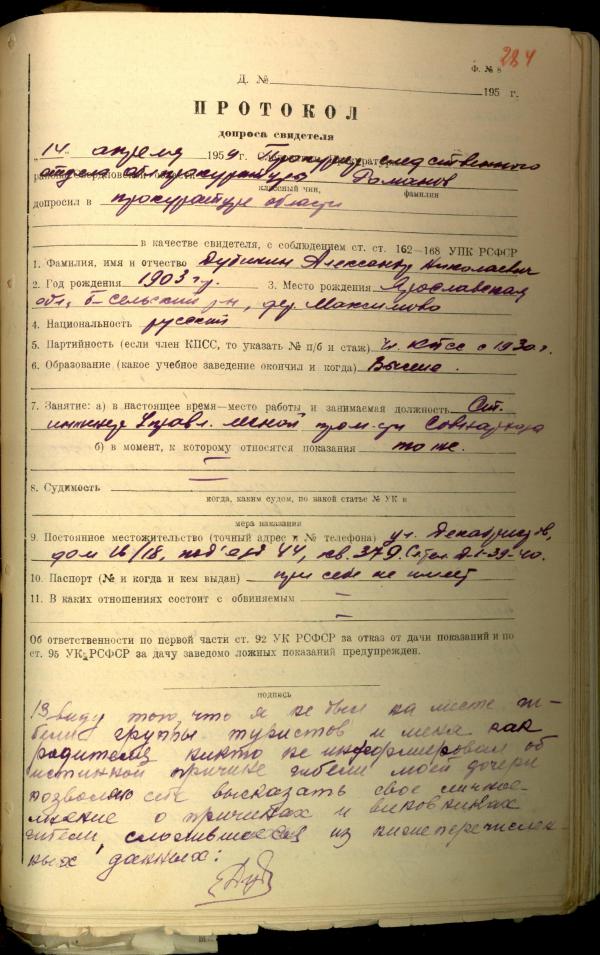 284
Ф. № 8
Д. № 195 г.
ПРОТОКОЛ
допроса свидетеля
„14“ апреля 1959 г. Прокурор следственного
отдела облпрокуратуры Романов
классный чин, фамилия
допросил в прокуратуре области
в качестве свидетеля, с соблюдением ст. ст. 162—168 УПК РСФСР
1. Фамилия, имя и отчество Дубинин Александр Николаевич
2. Год рождения 1903 г. 3. Место рождения Ярославская
обл., Б-Сельский р-н, дер. Максимово
4. Национальность русский
5. Партийность (если член КПСС, то указать № п/б и стаж) чл. КПСС с 1930 г.
6. Образование (какое учебное заведение окончил и когда) Высшее.
7. Занятие: а) в настоящее время—место работы и занимаемая должность Ст.
инженер Управл. лесной пром-ти Совнархоза
б) в момент, к которому относятся показания то же.
8. Судимость
когда, каким судом, по какой статье № УК и
мера наказания
9. Постоянное местожительство (точный адрес и № телефона) ул. Декабристов,
дом 16/18, под'езд 44, кв. 379. Д1-39-40.
10. Паспорт (№ и когда и кем выдан) при себе не имеет
11. В каких отношениях состоит с обвиняемым
Об ответственности по первой части ст. 92 УК РСФСР за отказ от дачи показаний и по
ст. 95 УК РСФСР за дачу заведомо ложных показаний предупрежден.
подпись
Ввиду того, что я не был на месте ги-
бели группы туристов и меня как
родителя никто не информировал об
истинной причине гибели моей дочери
позволяю себе высказать свое личное
мнение о причинах и виновниках
гибели, сложившееся из нижеперечислен-
ных данных: